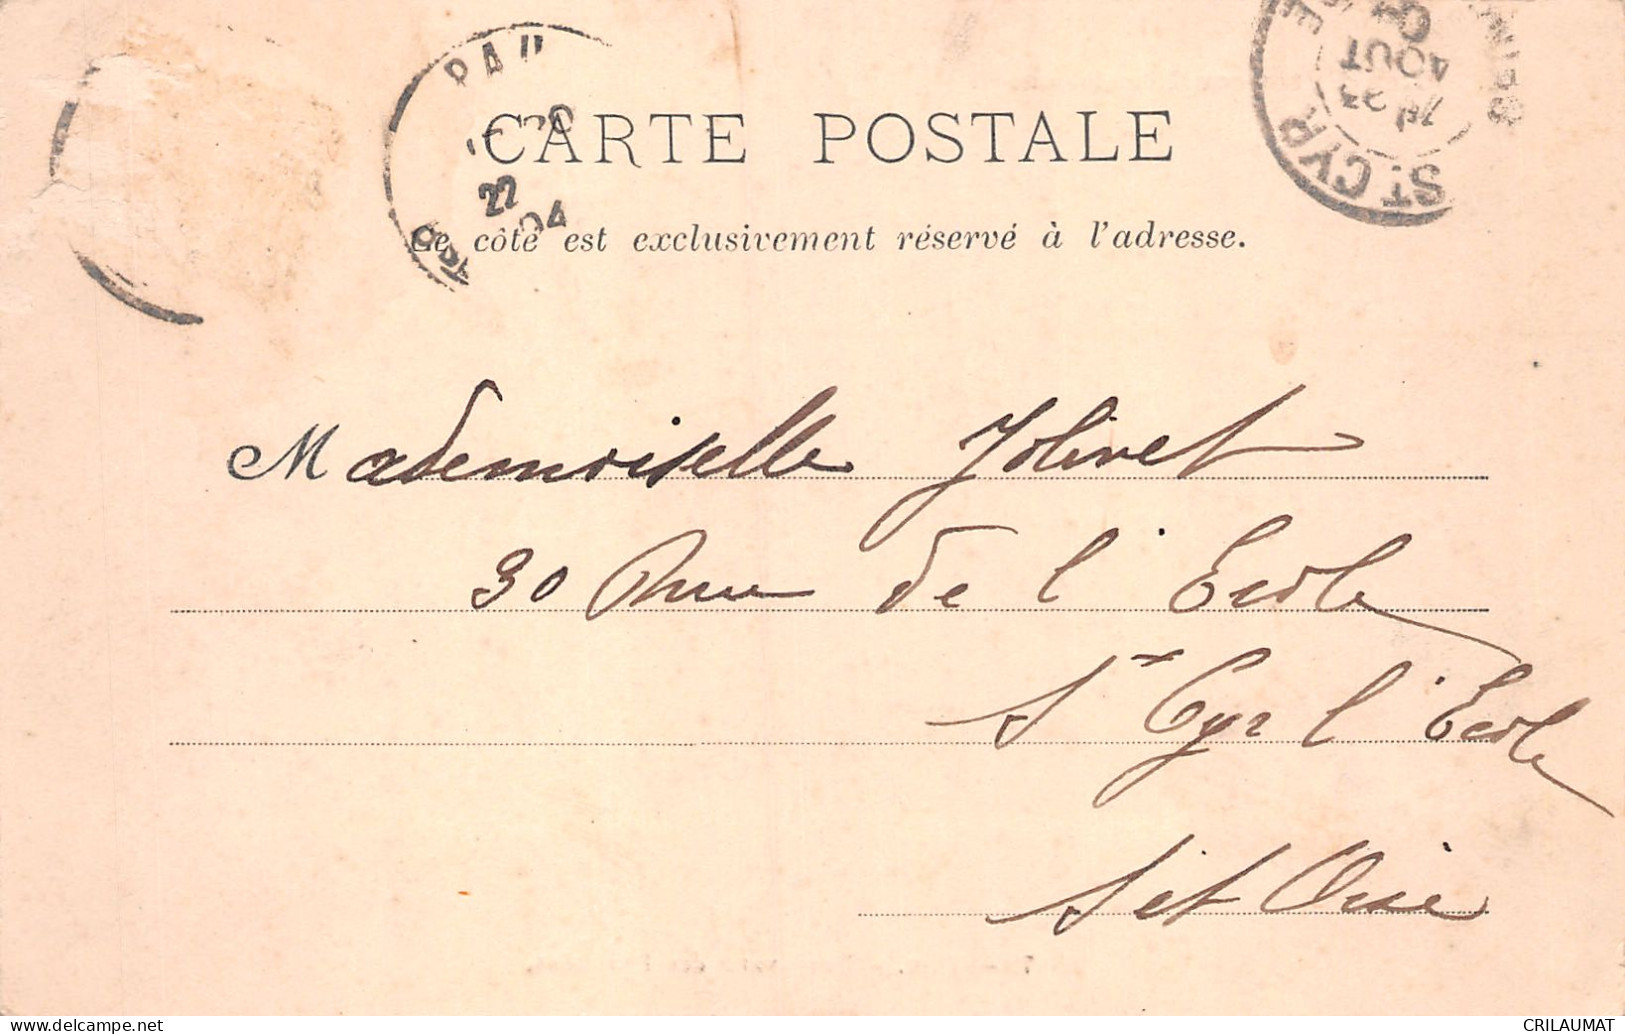 PAU
22
04
ST CYR
7E 23
AOUT
CARTE POSTALE
Ce côté est exclusivement réservé à l'adresse.
Mademoiselle Jolivet
30 Rue de l'Ecole
St Cyr l'Ecole
S et Oise
CRILAUMAT